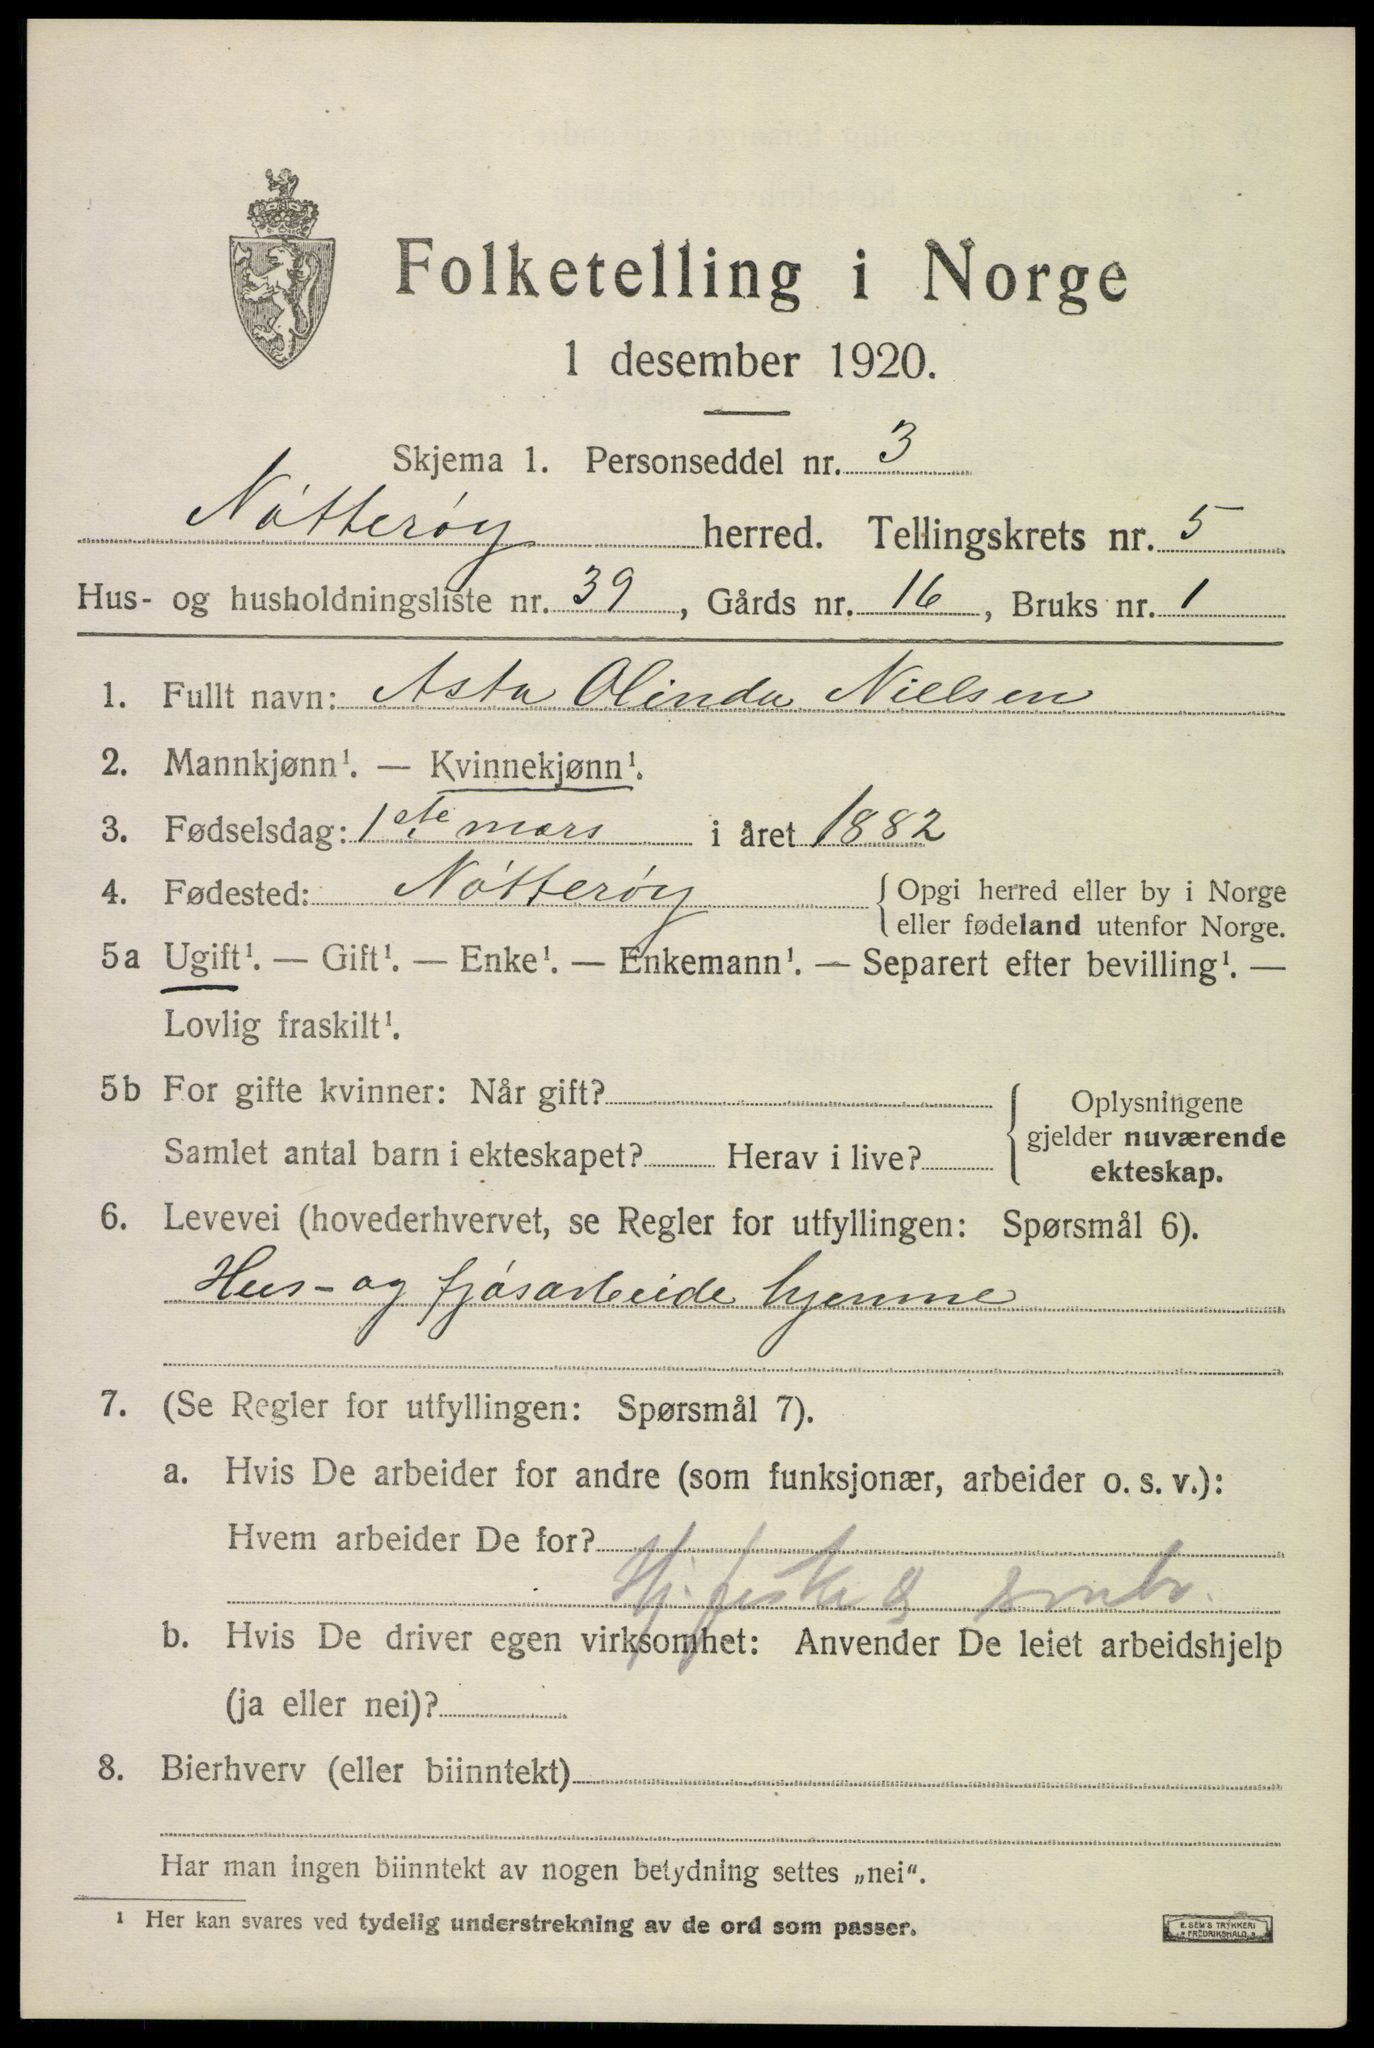 Folketelling i Norge
1 desember 1920.
Skjema 1. Personseddel nr. 3
Nøtterøy herred. Tellingskrets nr. 5
Hus- og husholdningsliste nr. 39, Gårds nr. 16, Bruks nr. 1
1. Fullt navn: Asta Olinda Nielsen
2. Mannkjønn¹. — Kvinnekjønn¹.
3. Fødselsdag: 1ste mars i året 1882
4. Fødested: Nøtterøy { Opgi herred eller by i Norge
eller fødeland utenfor Norge.
5a Ugift¹. — Gift¹. — Enke¹. — Enkemann¹. — Separert efter bevilling¹. —
Lovlig fraskilt¹.
5b For gifte kvinner: Når gift?
Samlet antal barn i ekteskapet? Herav i live?
{ Oplysningene
gjelder nuværende
ekteskap.
6. Levevei (hovederhvervet, se Regler for utfyllingen: Spørsmål 6).
Hus- og fjøsarbeide hjemme
7. (Se Regler for utfyllingen: Spørsmål 7).
a. Hvis De arbeider for andre (som funksjonær, arbeider o. s. v.):
Hvem arbeider De for?
b. Hvis De driver egen virksomhet: Anvender De leiet arbeidshjelp
(ja eller nei)?
8. Bierhverv (eller biinntekt)
Har man ingen biinntekt av nogen betydning settes „nei“.
¹ Her kan svares ved tydelig understrekning av de ord som passer.
E. SEM'S TRYKKERI
FREDRIKSHALD